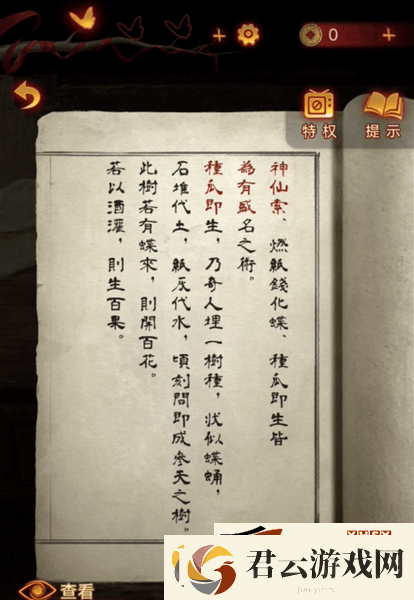 0
特权
提示
神仙索、燃紙錢化蝶、種瓜即生皆
為有盛名之術。
種瓜即生，乃奇人埋一樹種，狀似蝶蛹，
石堆代土，紙灰代水，頃刻間即成參天之樹。
此樹若有蝶來，則開百花。
若以酒灌，則生百果。
查看
君云游戏网